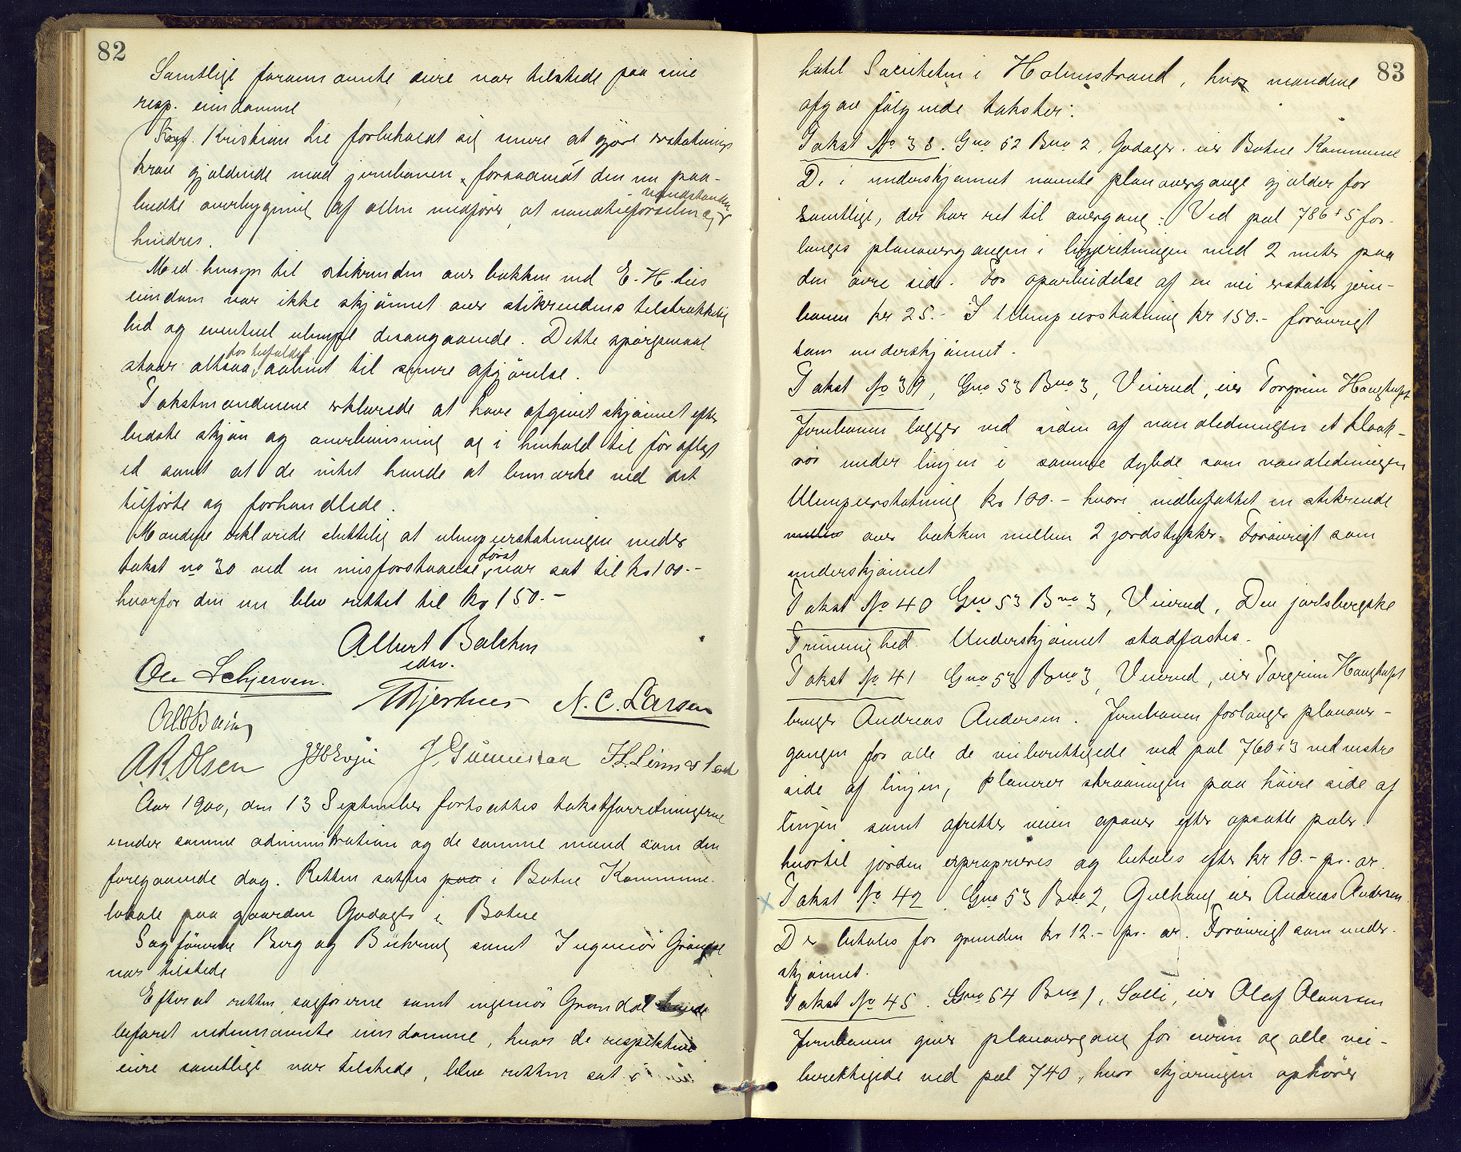 82
Samtlige foran nævnte eiere var tilstede paa sine
resp. eiendomme
Sagf. Kristian Lie forbeholdt sig senere at gjøre erstatnings
krav gjældende mod jernbanen, forsaavidt den nu paa-
budte overbygning af elven medfører, at vandtilførselen og vandstanden
hindres.
Med hensyn til stikrenden over bækken ved E. H. Lies
eiendom var ikke skjønnet over stikrendens tilstrækkelig
hed og eventuel ulempe desangaaende. Dette spørgsmaal
staar altsaa for tilfældet aabent til senere afgjørelse.
Takstmændene erklærede at have afgivet skjønnet efter
bedste skjøn og overbevisning og i henhold til før aflagt
ed samt at de intet havde at bemærke ved det
tilførte og forhandlede.
Mændene erklærede sluttelig at ulempeerstatningen under
takst no 30 ved en misforstaaelse først var sat til kr 100.-
hvorfor den nu blev rettet til kr 150.-
Albert Balchen
edsv.
Ole Schjerven. N. C. Larsen
A. K. Olsen
Aar 1900, den 13 September fortsattes takstforretningerne
under samme administration og de samme mænd som den
foregaaende dag. Retten sattes paa i Botne Kommune-
lokale paa gaarden Godager i Botne
Sagførerne Berg og Bühring samt Ingeniør Grøndal
var tilstede
Efterat retten, sagførerne samt ingeniør Grøndal havde
befaret nedennævnte eiendomme, hvor de respektive
eiere samtlige var tilstede, blev retten sat i
83
hotel Societeten i Holmestrand, hvor mændene
afgav følgende takster:
Takst No 38. Gno 52 Bno 2, Godager. eier Botne Kommune
De i underskjønnet nævnte planovergange gjælder for
samtlige, der har ret til overgang. Ved pæl 786+5 for-
langes planovergangen i linjeretningen med 2 meter paa
den øvre side. For oparbeidelse af en vei erstatter jern-
banen kr 25.- I Ulempeerstatning kr 150.- forøvrigt
som underskjønnet.
Takst No 39, Gno 53 Bno 3, Veierud, eier Torgrim Hangtufst
Jernbanen lægger ved siden af vandledningen et kloak-
rør under linjen i samme dybde som vandledningen
Ulempeerstatning kr 100.- hvori indbefattet en stikrende
mellem over bækken mellem 2 jordstykker. Forøvrigt som
underskjønnet
Takst No 40 Gno 53 Bno 3, Veierud, Den jarlsbergske
Frimenighed. Underskjønnet stadfæstes.
Takst No 41 Gno 53 Bno 3, Veierud, eier Torgrim Hangtufst
bruger Andreas Andersen. Jernbanen forlanger planover-
gangen for alle de veiberettigede ved pæl 760+3 ved vestre
side af linjen, planerer skraaningen paa høire side af
linjen samt opretter veien opover efter opsatte pæler
hvortil jorden exproprieres og betales efter kr 10.- pr. ar.
× Takst No 42 Gno 53 Bno 2, Gulhaug, eier Andreas Andersen
Der betales for grunden kr 12.- pr. ar. Forøvrigt som under-
skjønnet.
Takst No 45. Gno 54 Bno 1, Solli, eier Olaf Olaussen
Jernbanen giver planovergang for eieren og alle vei-
berettigede ved pæl 740, hvor skjæringen ophører